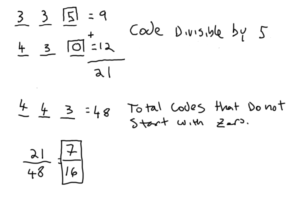 3 3 5 = 9 Code Divisible by 5
+
4 3 0 = 12
21
4 4 3 = 48 Total Codes that Do not
Start with Zero.
21 7
48 16